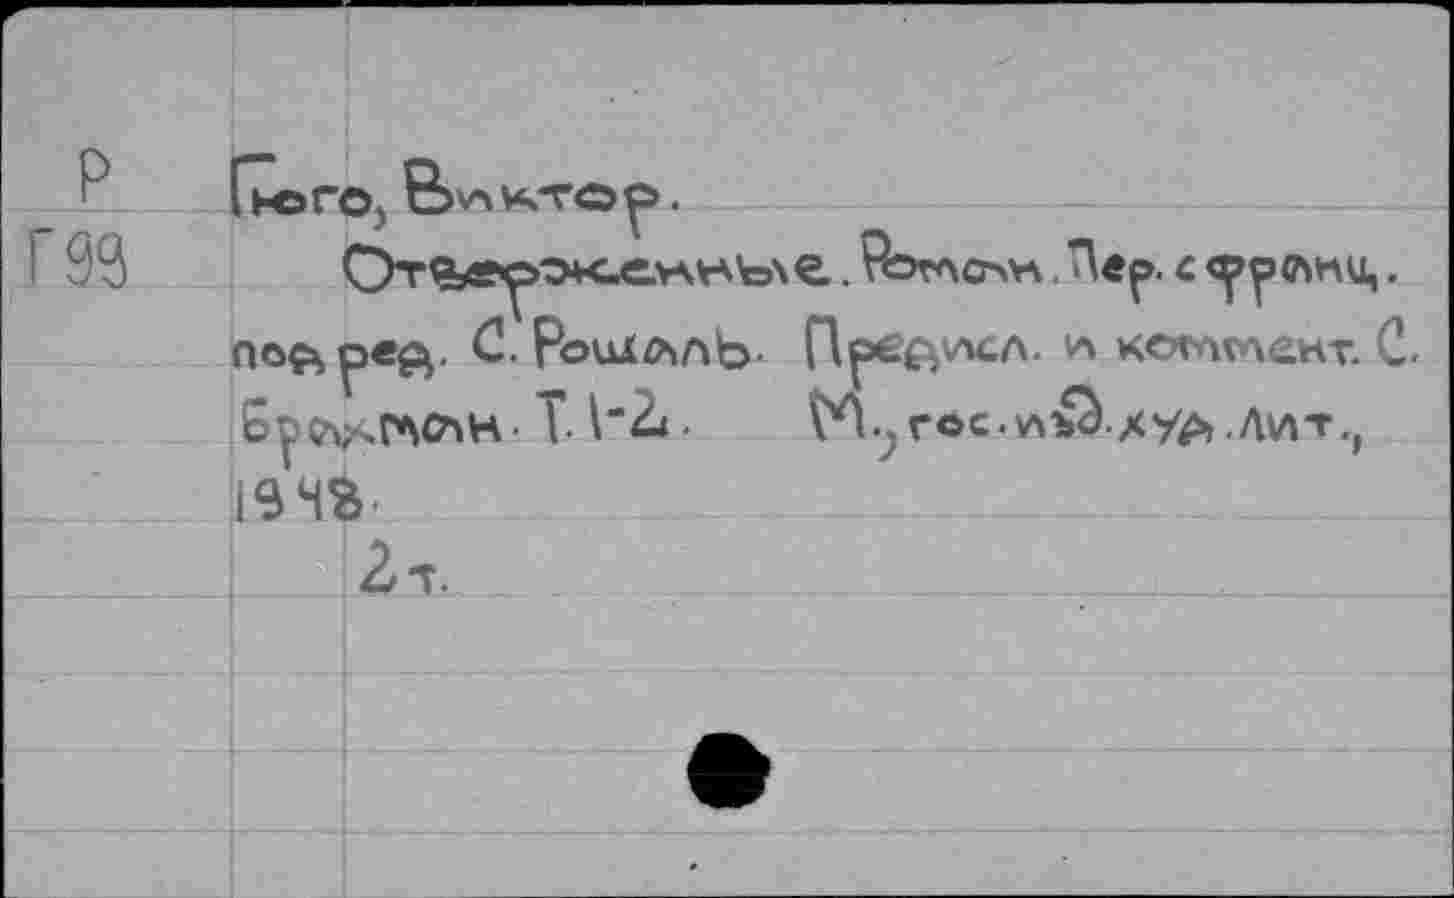 Р
Г99
Гюго, Виктор.
Отверженные. Роман. Пер. с франц.
под ред. С. Рошаль. Предисл. и коммент. С.
Брахман. Т. 1-2. М., гос. изд. худ. лит.,
1948.
2 т.